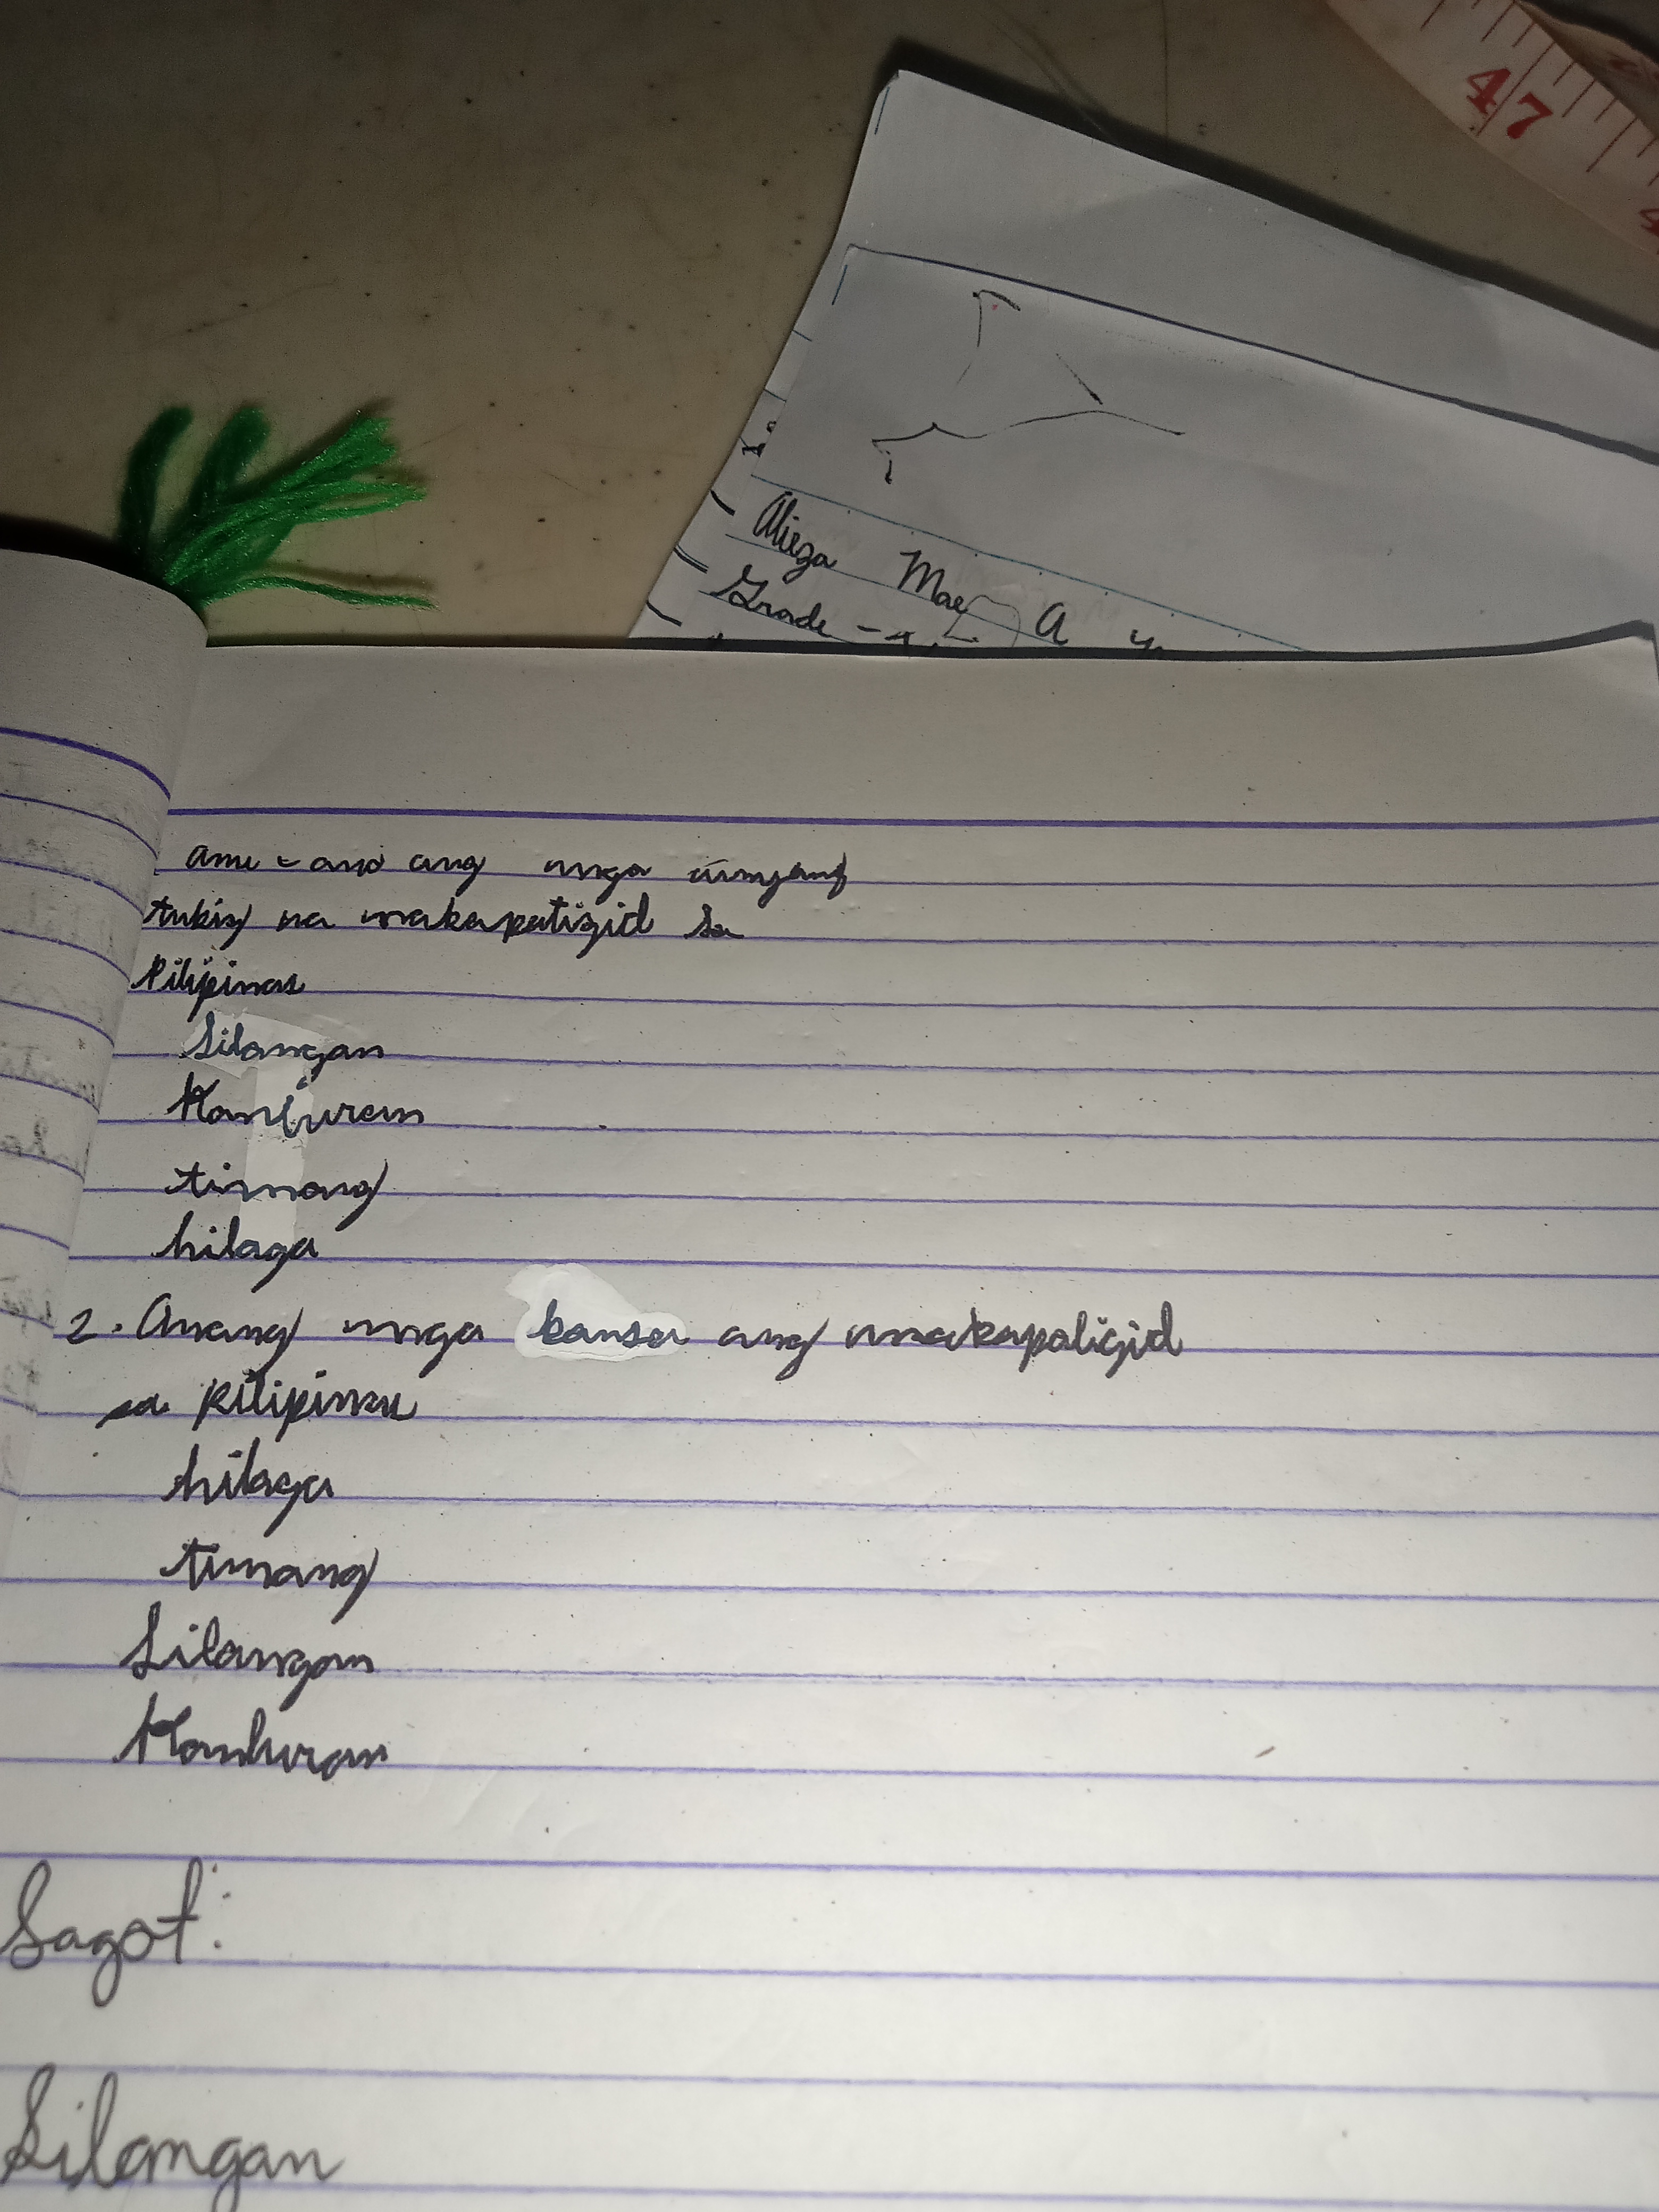 47
Alieza Mae A
Grade - 4
ano - ano ang mga anyong
tubig na makapatigid sa
Pilipinas
Silangan
Kanluran
timong
hilaga
2. Anong mga bansa ang makapaligid
sa Pilipinas
hilaga
timong
Silangan
Kanluran
Sagot:
Silangan